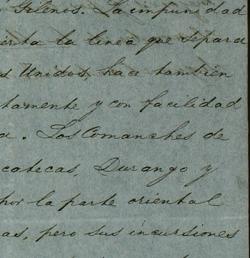 Gelenis. La impunidad
erta la linea que separa
s Unidos, hace tambien
tamente y con facilidad
a. Los Comanches de
catecas, Durango y
por la parte oriental
as, pero sus incursiones